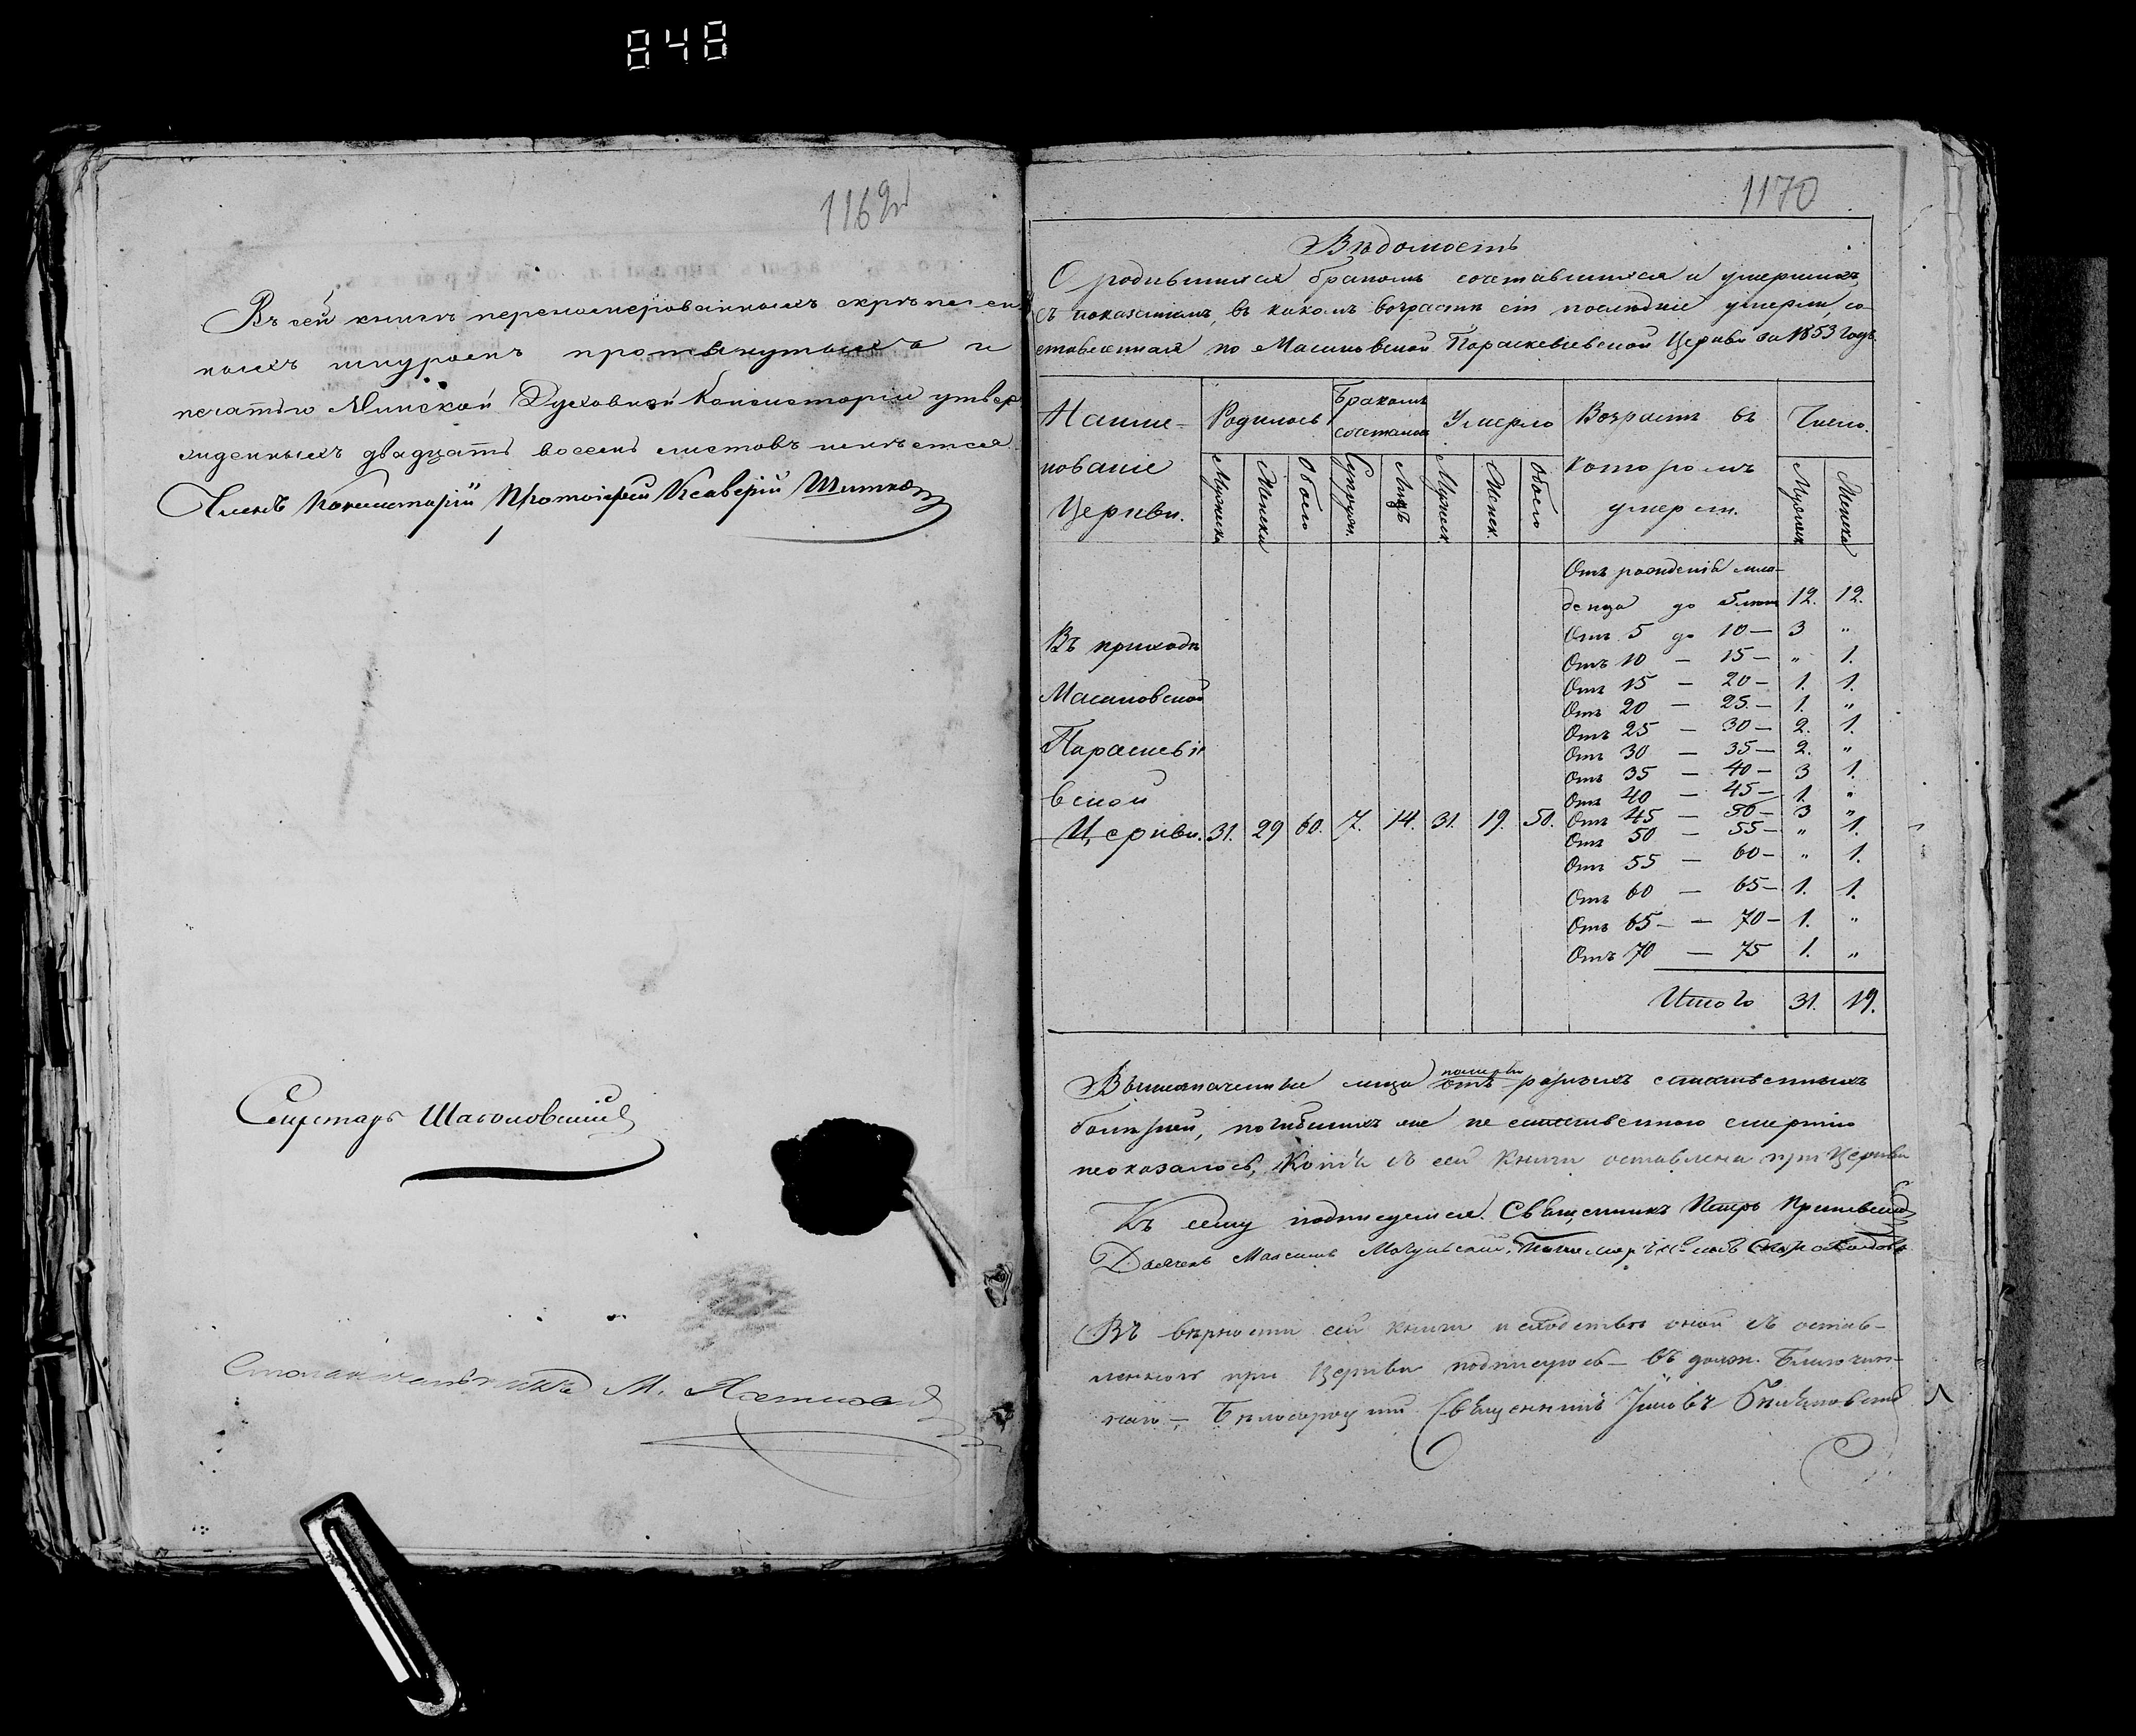 848
1169
Въ сей книгѣ перенумерованныхъ скрѣплен
ныхъ шнуромъ протянутыхъ и
печатію Минской Духовной Консисторіи утвер
жденныхъ двадцать восемь листовъ имѣется
Членъ Консисторіи Протоіерей Ксаверій
Секретарь
М.
1170
Вѣдомость
О родившихся бракомъ сочетавшихся и умершихъ,
съ показаніемъ, въ какомъ возрастѣ сіи послѣдніе умерли, со-
ставленная по Малиновской Параскевіевской Церкви за 1853 годъ.
Наиме- Родилось Бракомъ Умерло Возрастъ въ Число.
сочеталось
нованіе которомъ
Церкви. умерли.
Мужеска Женска Обоего Супруж. Лицъ Мужеск Женск. Обоего Мужеск Женска
Отъ рожденія мла-
денца до 5 лѣтъ 12. 12.
Отъ 5 до 10 — 3 "
Въ приходѣ
Отъ 10 — 15 — " 1.
Малиновской Отъ 15 — 20 — 1. 1.
Отъ 20 — 25. — 1. "
Параскевіе Отъ 25 — 30 — 2. 1.
Отъ 30 — 35 — 2. "
Отъ 35 — 40 — 3 1.
вской Отъ 40 — 45 — 1. "
Церкви. 31. 29 60. 7. 14. 31. 19. 50. Отъ 45 — 50 — 3 "
Отъ 50 — 55 — " 1.
Отъ 55 — 60 — " 1.
Отъ 60 — 65 — 1. 1.
Отъ 65 — — 70 — 1. "
Отъ 70 — 75 1. "
Итого 31. 19.
Вышеозначенные лица отъ разныхъ естественныхъ
болѣзней, погибшихъ же не естественною смертію
неоказалось, Копія съ сей книги оставлена при Церкви
Къ сему подписуемся. Священникъ Петръ
Дьячекъ Максимъ
Въ вѣрности сей книги и сходствѣ оной съ остав-
ленною при Церкви подписуюсь — въ долж. Благочин-
наго — Священникъ